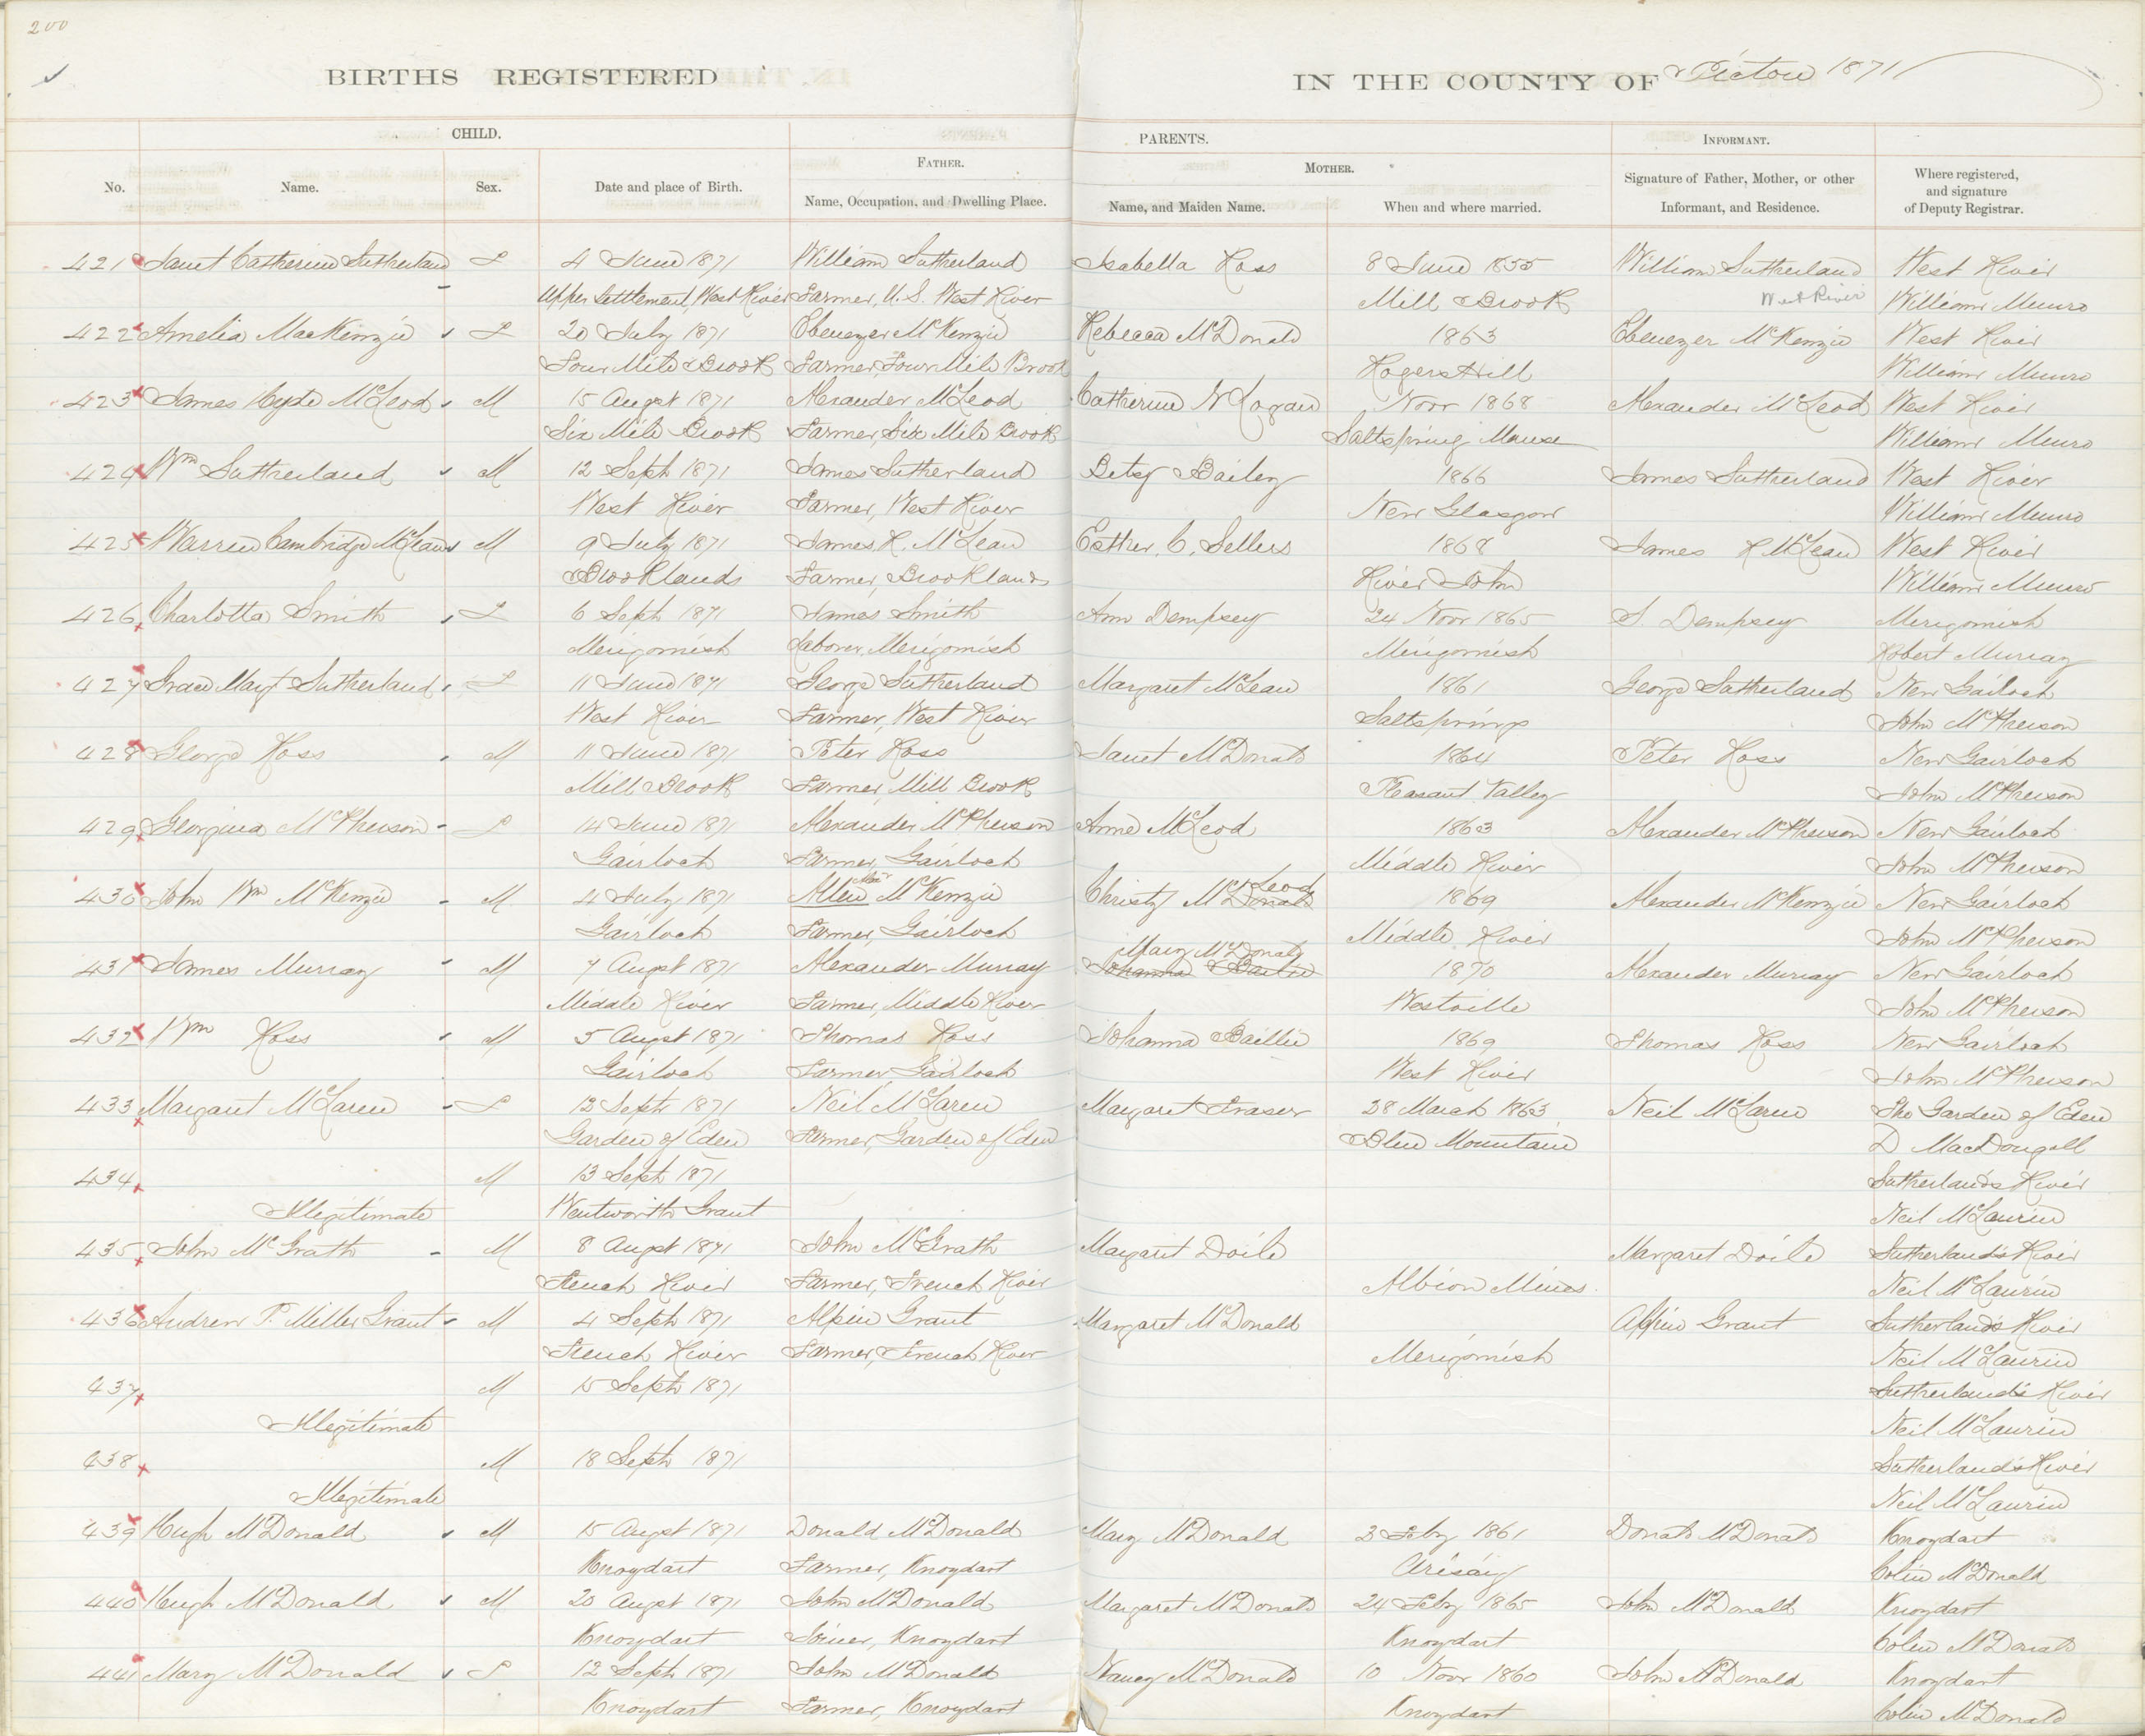 200
BIRTHS REGISTERED IN THE COUNTY OF Pictou 1871
CHILD. PARENTS. INFORMANT.
FATHER. MOTHER.
No. Name. Sex. Date and place of Birth. Name, Occupation, and Dwelling Place. Name, and Maiden Name. When and where married. Signature of Father, Mother, or other Informant, and Residence. Where registered, and signature of Deputy Registrar.
421 Janet Catherine Sutherland F 4 June 1871 William Sutherland Isabella Ross 8 June 1855 William Sutherland West River
Upper Settlement, West River Farmer, U.S. West River Mill Brook West River William Munro
422 Amelia MacKinzie F 20 July 1871 Ebenezer McKenzie Rebecca McDonald 1863 Ebenezer McKenzie West River
Four Mile Brook Farmer, Four Mile Brook Rogers Hill William Munro
423 James Hyde McLeod M 15 Augst 1871 Alexander McLeod Catherine N Logan Novr 1868 Alexander McLeod West River
Six Mile Brook Farmer, Six Mile Brook Saltspring Manse William Munro
424 Wm Sutherland M 12 Sept 1871 James Sutherland Betsy Bailey 1866 James Sutherland West River
West River Farmer, West River New Glasgow William Munro
425 Warren Cambridge McLean M 9 July 1871 James R. McLean Esther C. Sellers 1868 James R McLean West River
Brooklands Farmer, Brooklands River John William Munro
426 Charlotta Smith F 6 Sept 1871 James Smith Ann Dempsey 24 Novr 1865 S. Dempsey Merigomish
Merigomish Laborer, Merigomish Merigomish Robert Murray
427 Grace Mary Sutherland F 11 June 1871 George Sutherland Margaret McLean 1861 George Sutherland New Gairloch
West River Farmer, West River Saltsprings John McPherson
428 George Ross M 11 June 1871 Peter Ross Janet McDonald 1864 Peter Ross New Gairloch
Mill Brook Farmer, Mill Brook Pleasant Valley John McPherson
429 Georgina McPherson F 14 June 1871 Alexander McPherson Anne McLeod 1863 Alexander McPherson New Gairloch
Gairloch Farmer, Gairloch Middle River John McPherson
430 John Wm McKenzie M 4 July 1871 Allen Alexr McKenzie Christy McDonald Leod 1869 Alexander McKenzie New Gairloch
Gairloch Farmer, Gairloch Middle River John McPherson
Mary McDonald
431 James Murray M 7 Augst 1871 Alexander Murray Johanna Bailie 1870 Alexander Murray New Gairloch
Middle River Farmer, Middle River Westville John McPherson
432 Wm Ross M 5 Augst 1871 Thomas Ross Johanna Baillie 1869 Thomas Ross New Gairloch
Gairloch Farmer, Gairloch West River John McPherson
433 Margaret McLaren F 12 Septr 1871 Neil McLaren Margaret Fraser 28 March 1863 Neil McLaren The Garden of Eden
Garden of Eden Farmer, Garden of Eden Blue Mountain D MacDougall
434 M 13 Sept 1871 Sutherlands River
Illegitimate Wentworth Grant Neil McLaurin
435 John McGrath M 8 Augst 1871 John McGrath Margaret Doile Margaret Doile Sutherland's River
French River Farmer, French River Albion Mines Neil McLaurin
436 Andrew P. Miller Grant M 4 Sept 1871 Alpin Grant Margaret McDonald Alpin Grant Sutherlands River
French River Farmer, French River Merigomish Neil McLaurin
437 M 15 Sept 1871 Sutherland's River
Illegitimate Neil McLaurin
438 M 18 Sept 1871 Sutherland's River
Illegitimate Neil McLaurin
439 Hugh McDonald M 15 Augst 1871 Donald McDonald Mary McDonald 3 Feby 1861 Donald McDonald Knoydart
Knoydart Farmer, Knoydart Arisaig Colin McDonald
440 Hugh McDonald M 20 Augst 1871 John McDonald Margaret McDonald 24 Feby 1865 John McDonald Knoydart
Knoydart Joiner, Knoydart Knoydart Colin McDonald
441 Mary McDonald F 12 Sept 1871 John McDonald Nancy McDonald 10 Novr 1860 John McDonald Knoydart
Knoydart Farmer, Knoydart Knoydart Colin McDonald